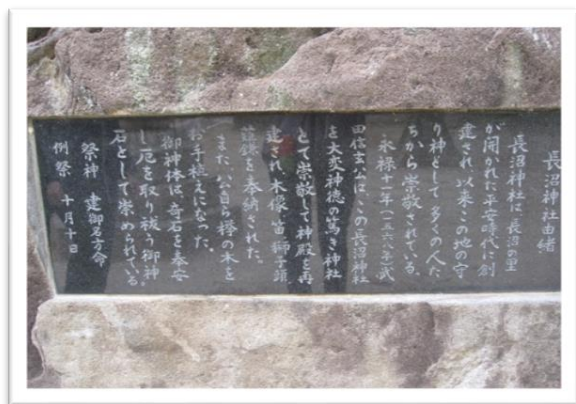 長沼神社由緒
長沼神社は長沼の里
が開かれた平安時代に創
建され、以来この地の守
り神として多くの人た
ちから崇敬されている。
永禄十一年(一五六八年)武
田信玄公は、この長沼神社
を大変神徳の篤き神社
とて崇敬して神殿を再
建され、木像、笛、獅子頭
薙鎌を奉納された。
また、公自ら欅の木を
お手植えになった。
御神体は、奇石を奉安
し厄を取り祓う御神
石として崇められている。
祭神 建御名方命
例祭 十月十日